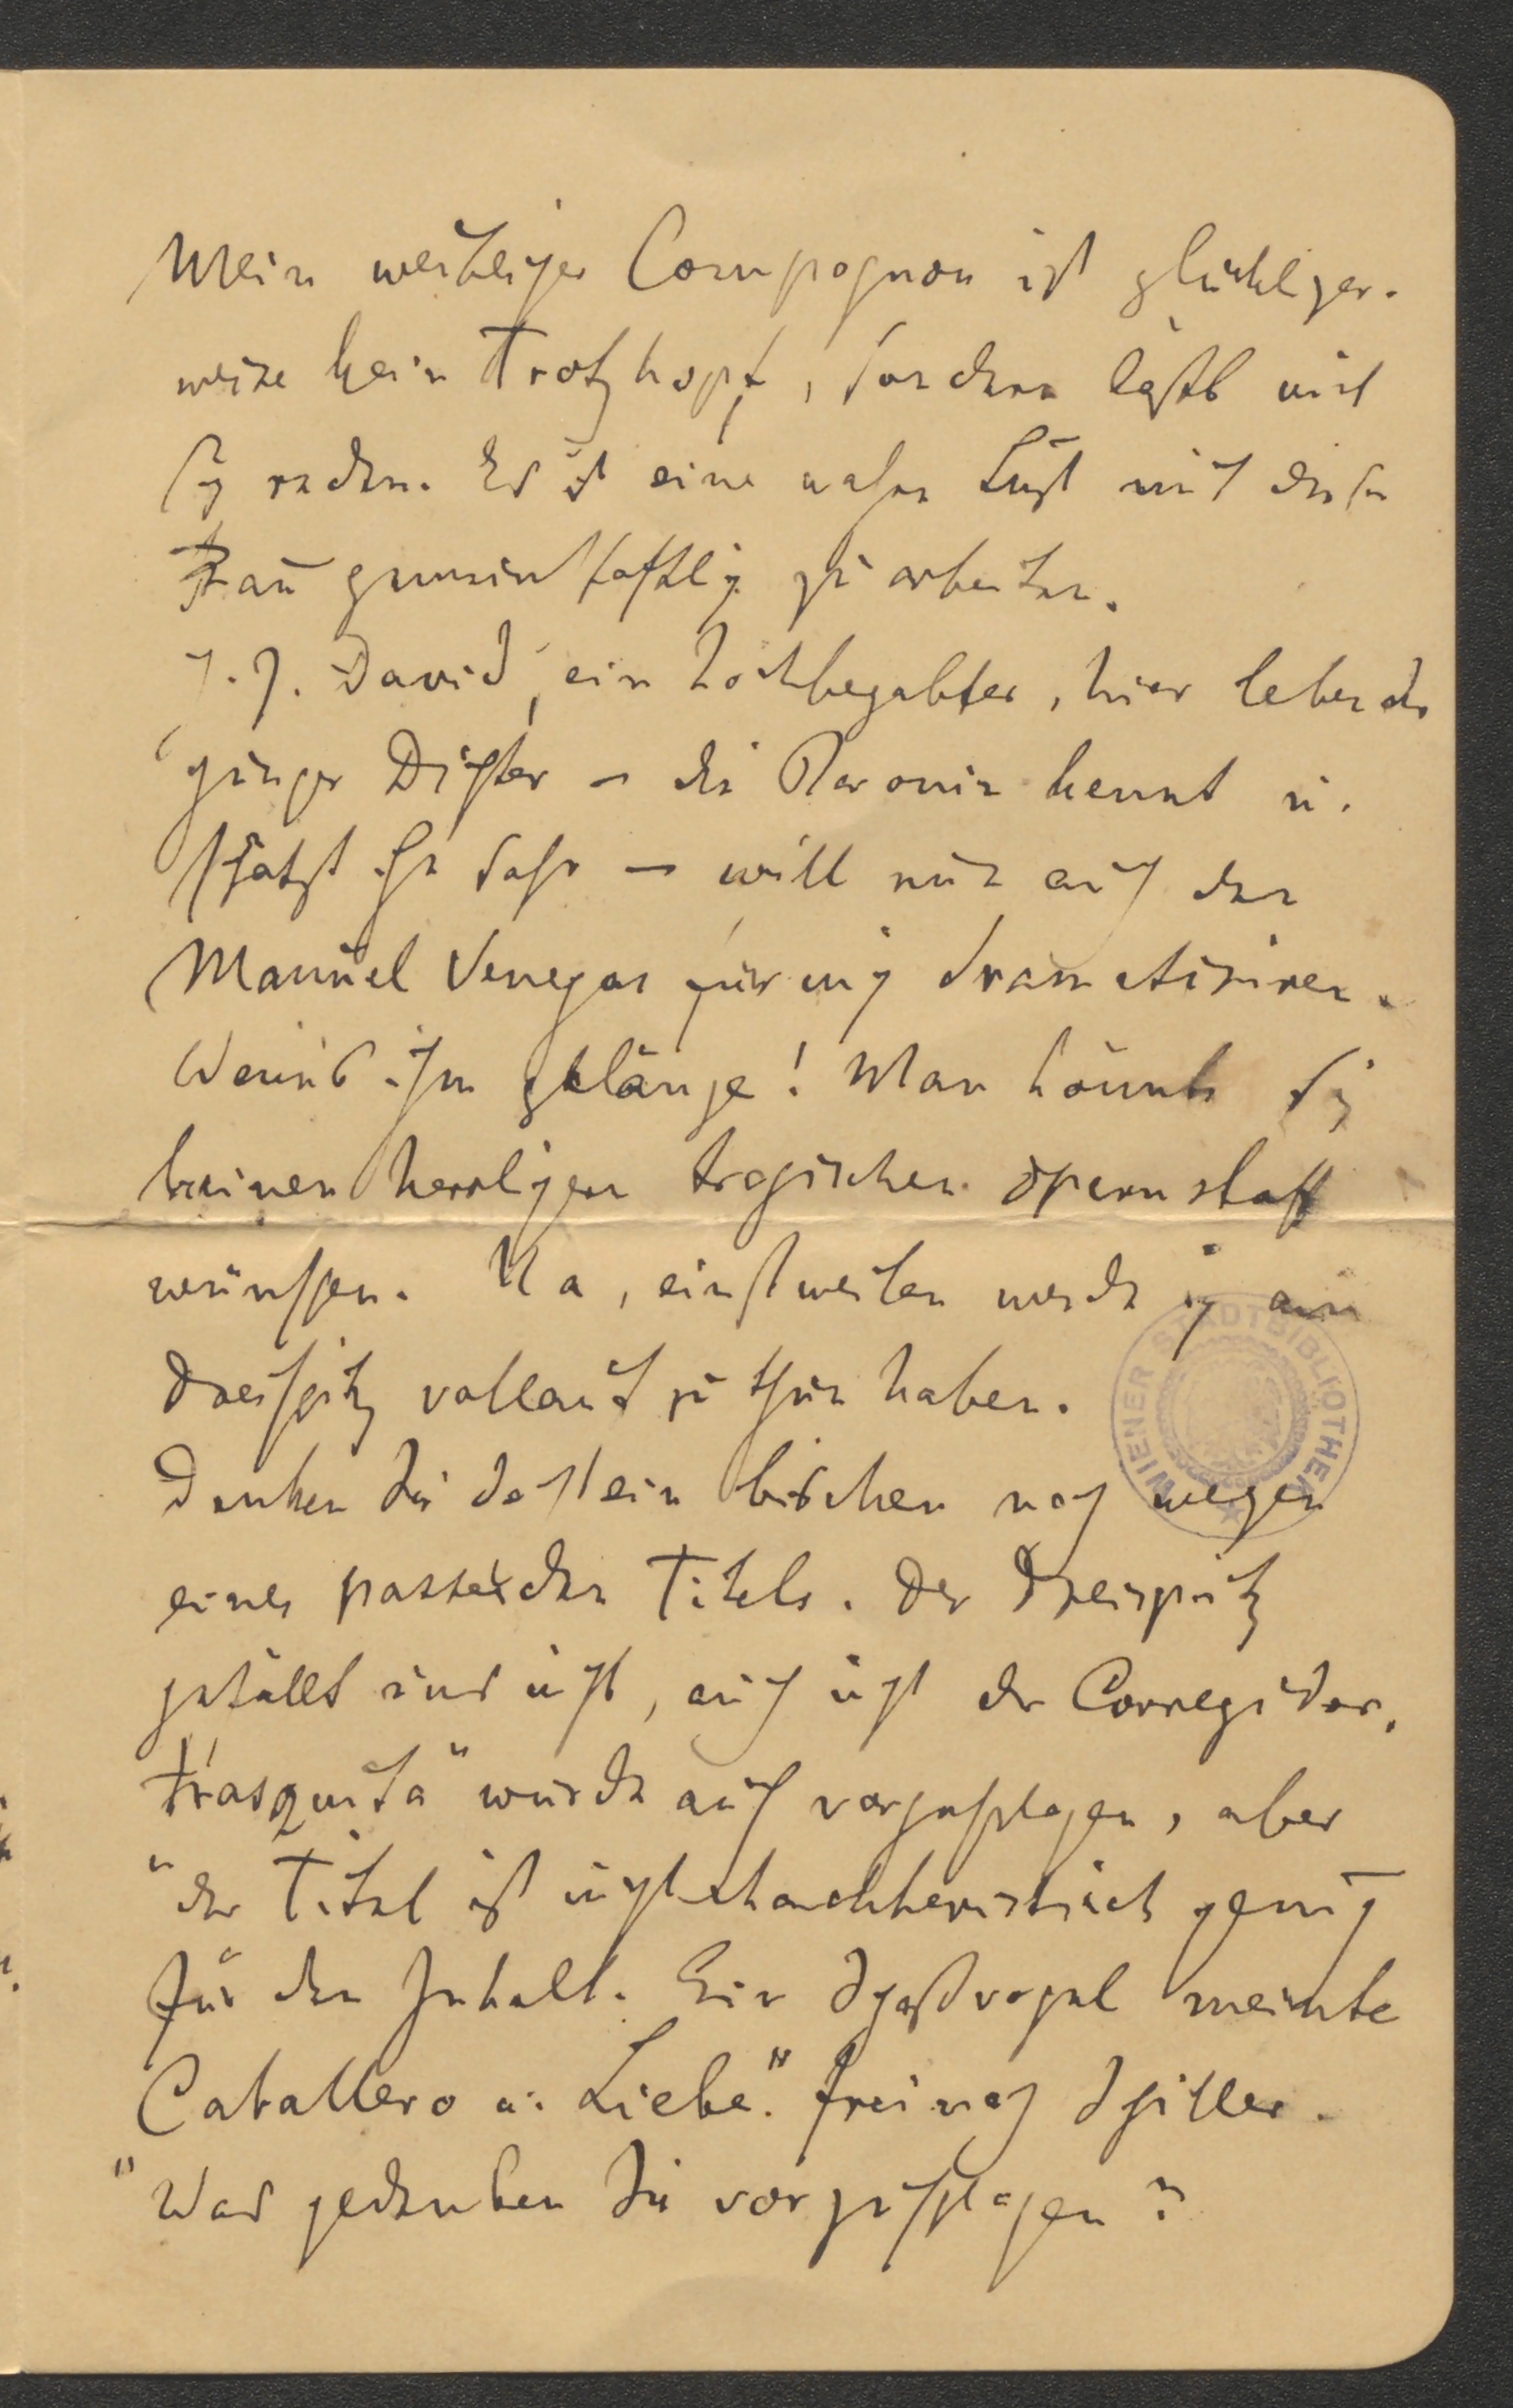 Mein weiblicher Compagnon ist glücklicher-
weise kein Trotzkopf, sondern läßt mit
sich reden. Es ist eine wahre Lust mit dieser
Frau gemeinschaftlich zu arbeiten.
J. J. David, ein hochbegabter, hier lebender
junger Dichter – die Baronin kennt u.
schätzt ihn sehr – will nun auch den
Manuel Venegas für mich dramatisiren.
Wenn's ihm gelänge! Man könnte sich
keinen herrlichern tragischen Opernstoff
wünschen. Na, einstweilen werde ich am
Dreispitz vollauf zu thun haben.
Denken Sie doch ein bischen nach wegen
eines passenden Titels. Der Dreispitz
gefällt uns nicht, auch nicht der Corregidor,
„Frasquita“ wurde auch vorgeschlagen, aber
der Titel ist nicht charakteristisch genug
für den Inhalt. Ein Spaßvogel meinte
„Caballero u. Liebe“ frei nach Schiller.
Was gedenken Sie vorzuschlagen?
WIENER STADTBIBLIOTHEK